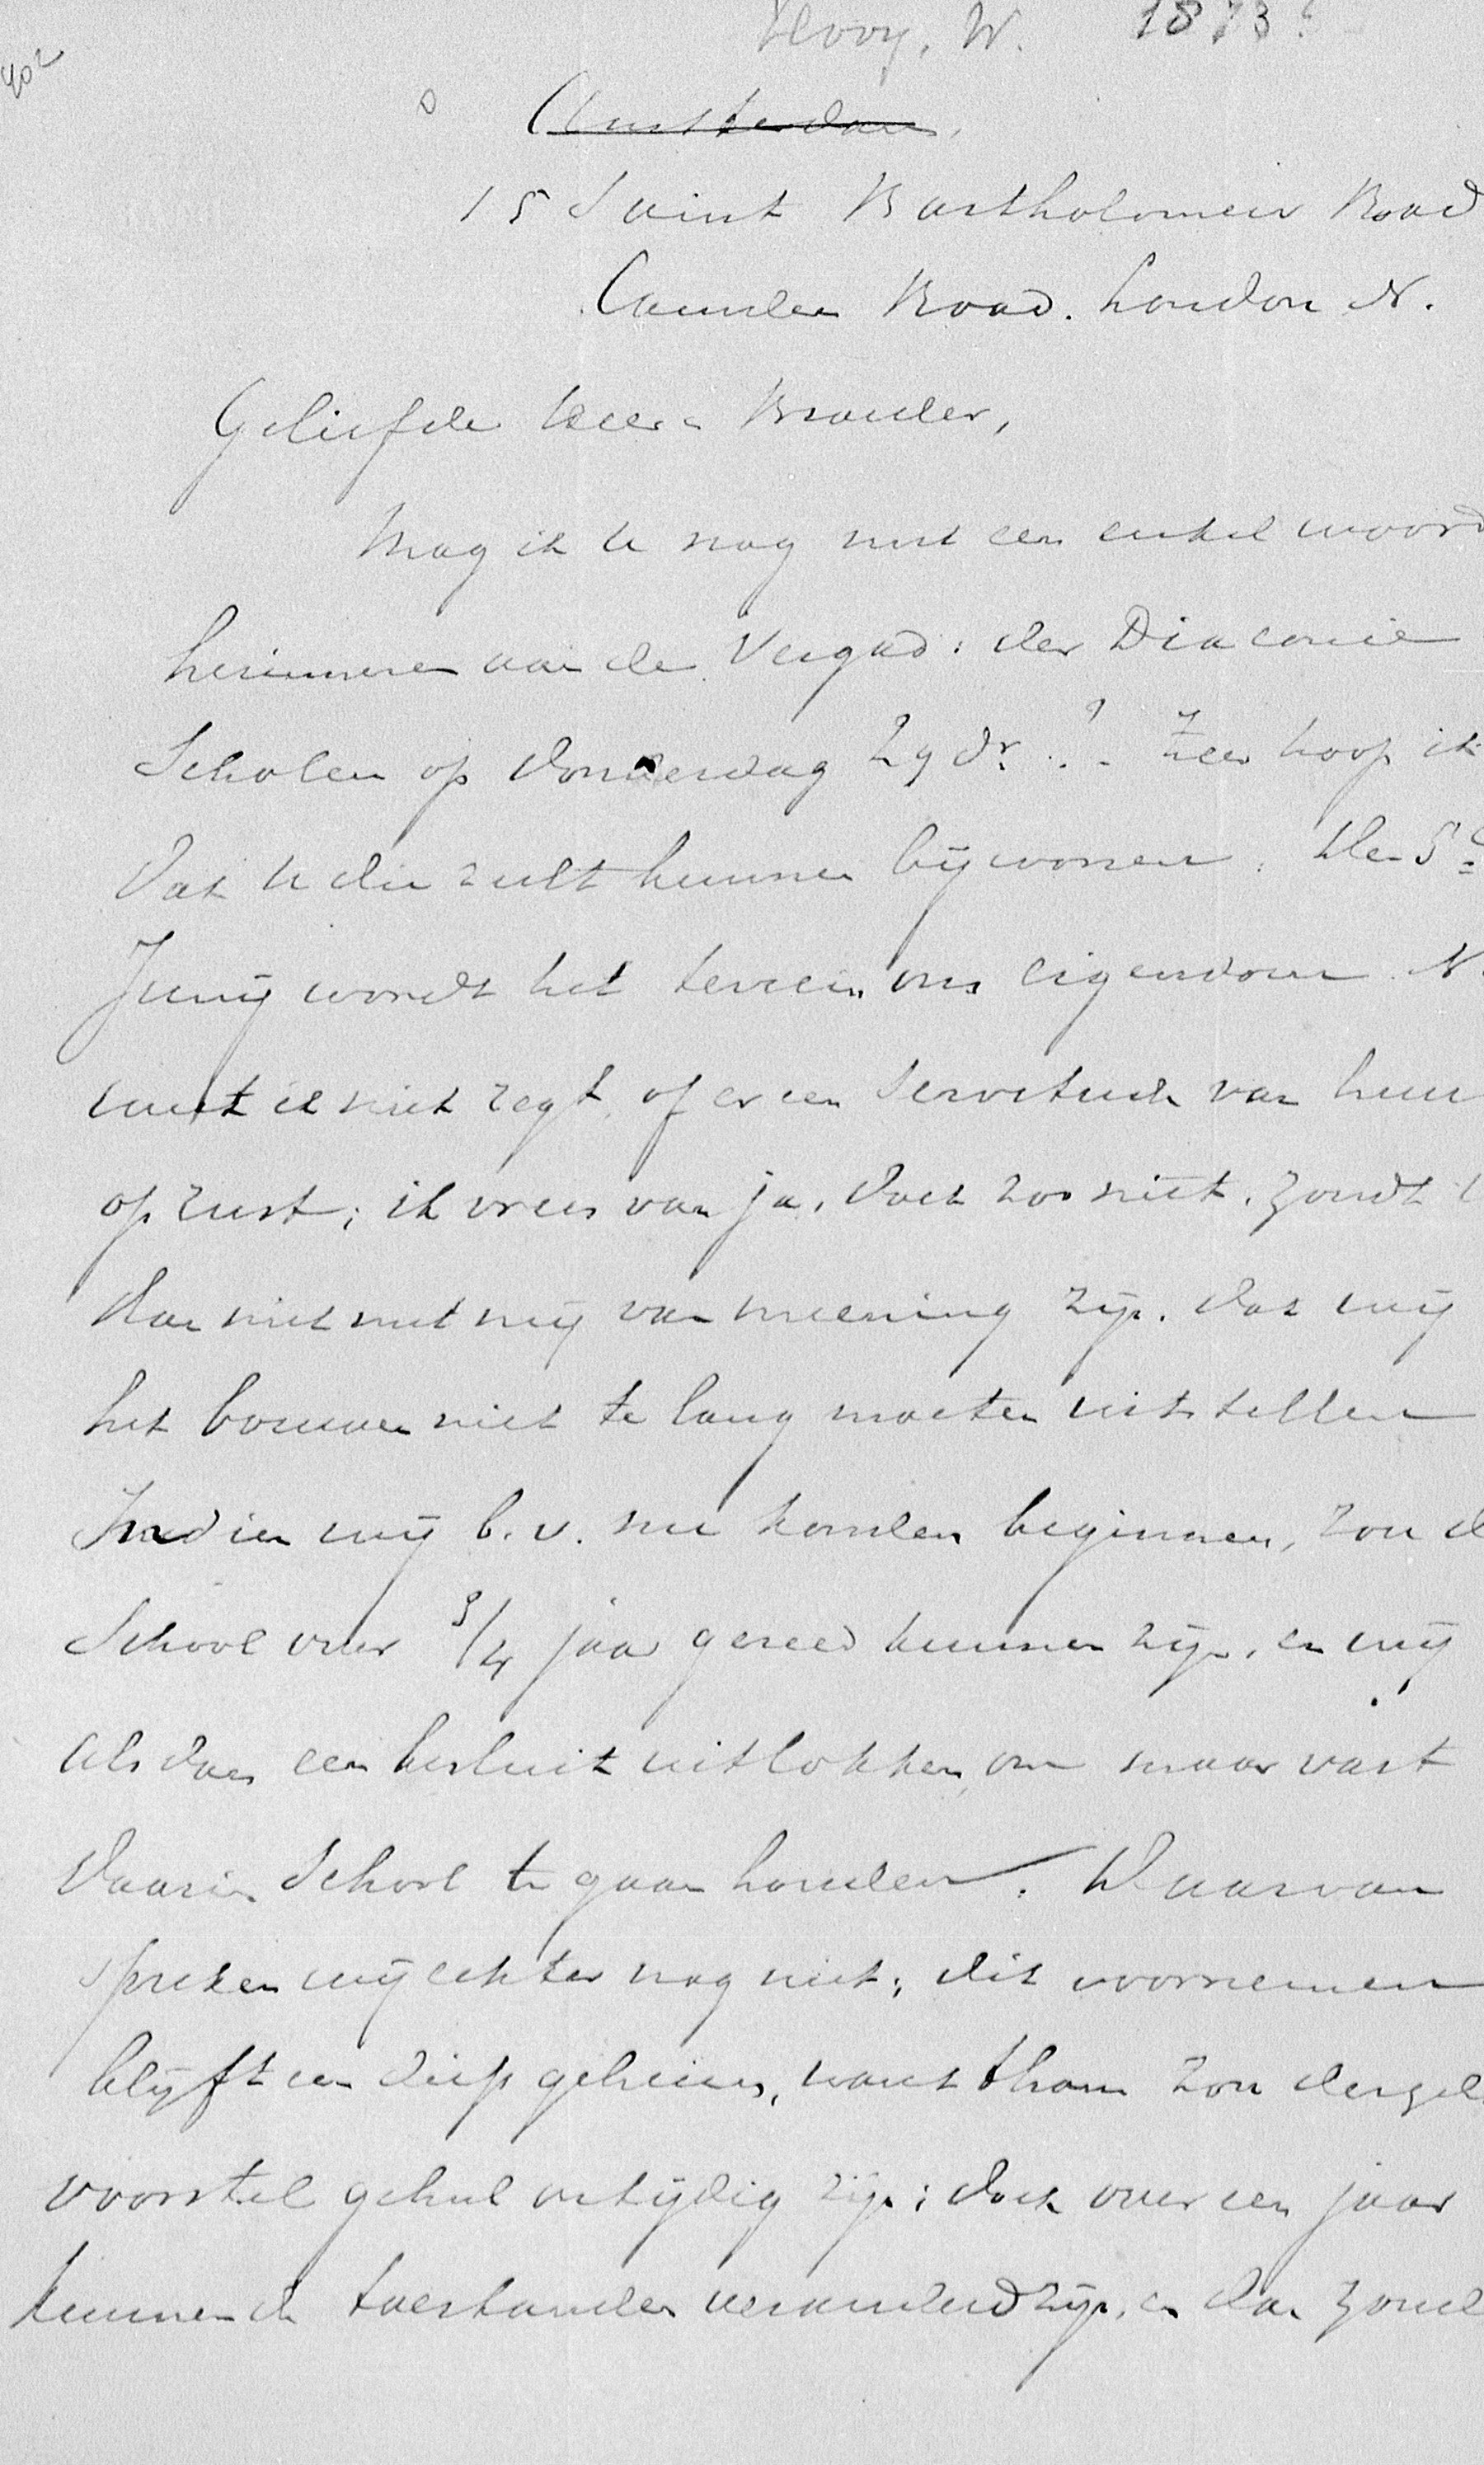 Hovy, W. 1873?
402
Amsterdam,
15 Saint Bartholomew Road
Camden Road. London N.
Geliefde Heer & Broeder,
Mag ik U nog met een enkel woord
herinneren aan de Vergad: der Diaconie
Scholen op Donderdag 29 dr. ? Zeer hoop ik
dat U die zult kunnen bijwonen. Den 5e
Junij wordt het terrein ons eigendom. N.
weet ik niet regt, of er een Servituut van huur
op rust; ik vrees van ja. doch zoo niet. Zoudt
dan niet met mij van meening zijn. dat wij
het bouwen niet te lang moeten uitstellen
Indien wij b.v. nu konden beginnen, zou d
School over 3/4 jaar gereed kunnen zijn. en wij
alsdan een besluit uitlokken, om maar vast
daarin School te gaan houden. Daarvan
spreken wij echter nog niet; dit voornemen
blijft een diep geheim, want thans zou dergel
voorstel geheel ontijdig zijn; doch over een jaar
kunnen de toestanden veranderd zijn. en dan zoud